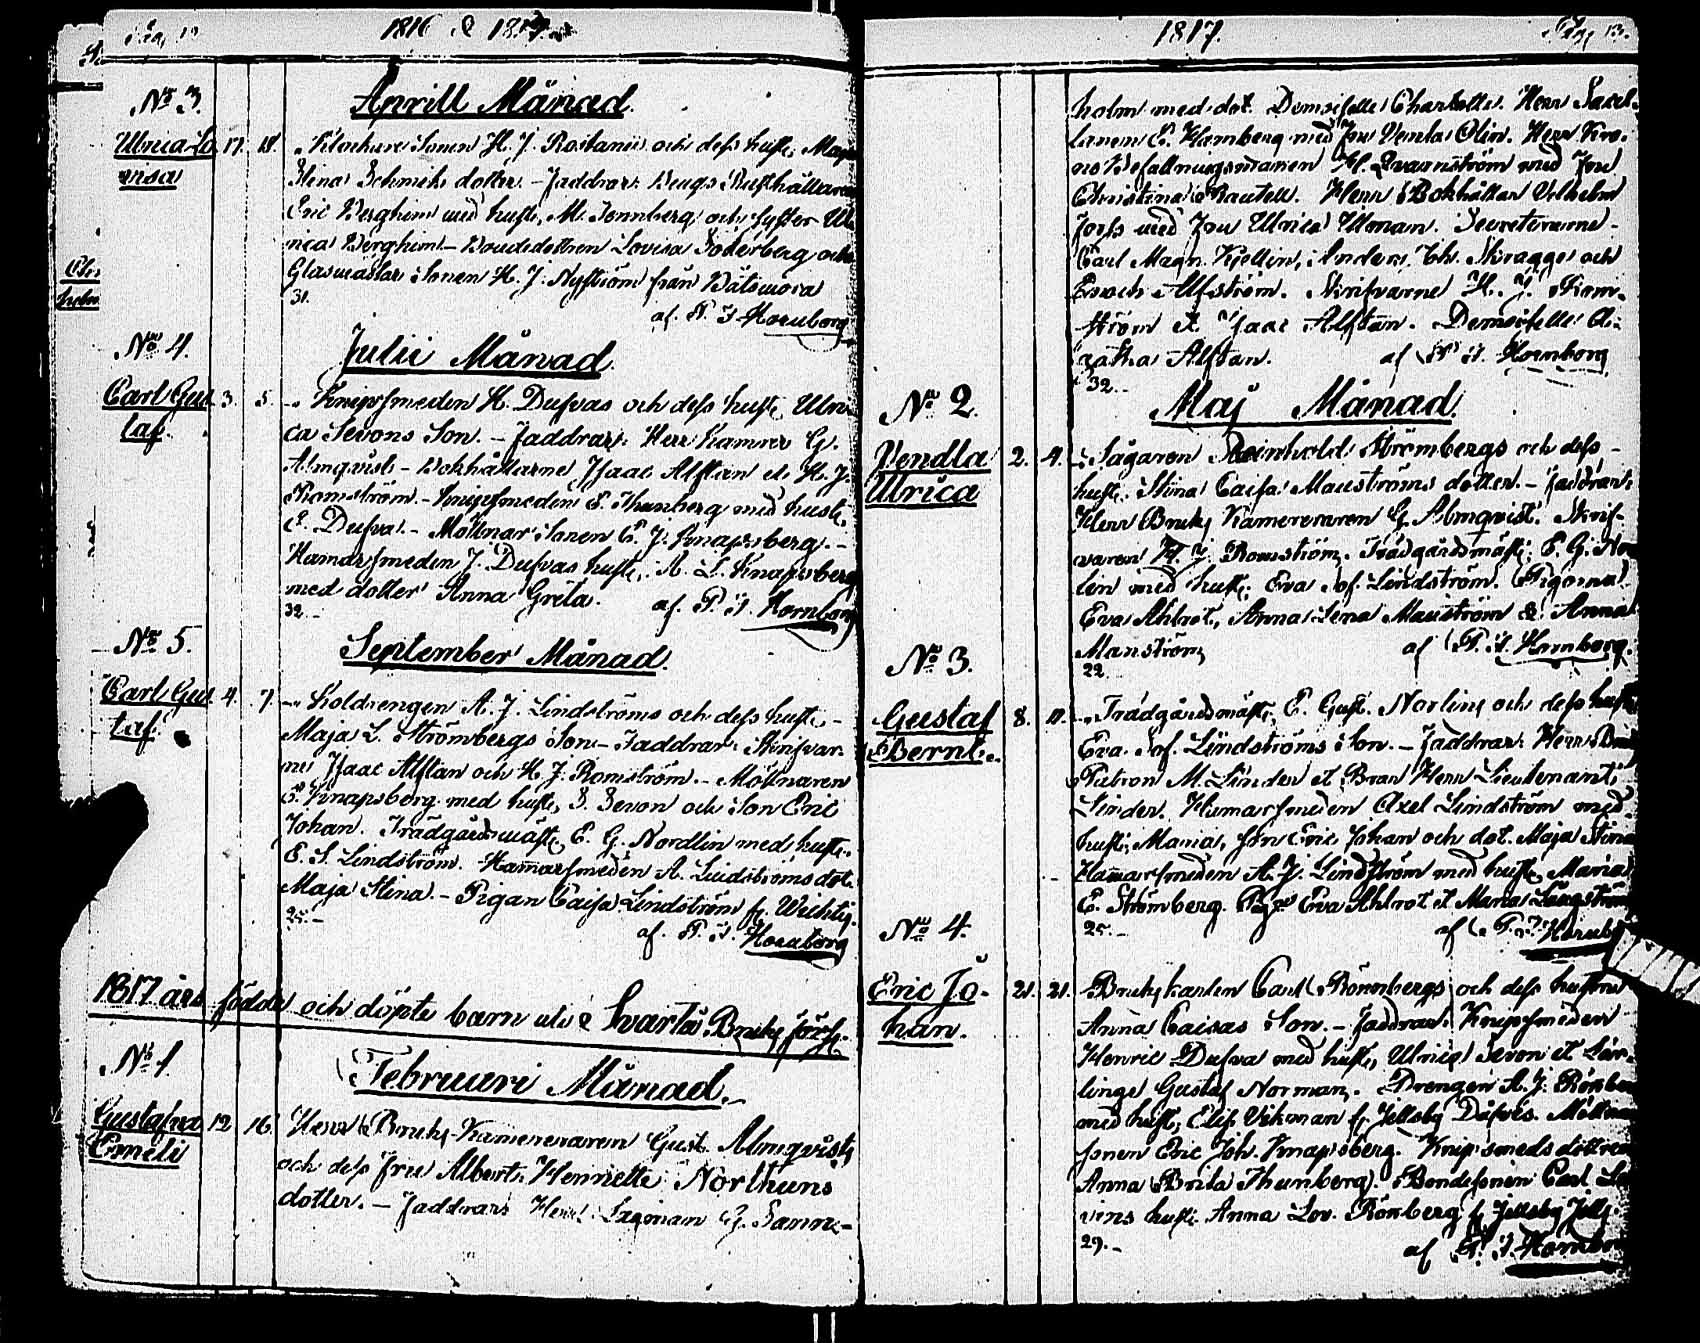 Pag. 12
1816 & 1817.
No 3.
Aprill Månad.
Ulrica Lo- 17. 18. Klockare Sonen H. J. Rostanii och dess hust. Maja
visa
Stina Schmidts dotter. – Faddrar: Brugs Rusthållaren
Eric Berghem med hust. M. Tennberg och syster Ul-
rica Berghem – Bondedottren Lovisa Söderberg och
Glasmästar Sonen H. J. Nyström från Båtsmora
31.
af P. J. Hornborg
No 4.
Julii Månad
Carl Gus- 3. 5. Knipsmeden H. Dufvas och dess hust. Ulri-
taf.
ca Sevons Son. – Faddrar: Herr Kamrer G.
Almqvist – Bokhållarne Isaac Alftan et H. J.
Romström. – Knipsmeden E. Thunberg med hust.
E. Dufva. – Möllnar Sonen E. J. Knapsberg. –
Hamarsmeden J. Dufvas hust. A. L. Knapsberg
med dotter Anna Greta.
32.
af P. J. Hornborg
No 5.
September Månad.
Carl Gus- 4. 7. Koldrengen A. J. Lindströms och dess hust. –
taf.
Maja L. Strömbergs Son – Faddrar: Skrifvar-
ne Isaac Alftan och H. J. Romström. – Möllnaren
E. Knapsberg med hust. S. Sevon och Son Eric
Johan. Trädgårdsmäst. E. G. Nordlin med hust.
E. S. Lindström. Hamarsmeden A. Lindströms dot.
Maja Stina. – Pigan Caisa Lindström
25. –
af P. J. Hornborg
1817 års födde och döpte barn uti Svartå Bruks förs.
No 1.
Februari Månad.
Gustafva 12 16. Herr Bruks Kamereraren Gust. Almqvists
Emeli
och dess Fru Albert. Henriette Northuns
dotter. – Faddrar: Herr Lagman G. Sanne-
1817.
Pag. 13.
holm med dot. Demoiselle Charlotte. Herr Sacel-
lanen E. Hamberg med Fru Vendla Olin. Herr Kro-
no Befallningsmannen H. Qvarnström med Fru
Christina Rautell. Herr Bokhållar Vilhelm
Forss med Fru Ulrica Ulman. Secreterarne
Carl Magn. Kjellin, Anders Th. Skragge och
Enoch Alfström. Skrifvarne H. J. Rom-
ström et Isaac Alftan. Demoiselle A-
gatha Alftan. af P. J. Hornborg
32. –
No 2.
Maj Månad.
Vendla 2. 4. Sågaren Reinhold Strömbergs och dess
Ulrica
hust. Stina Caisa Manströms dotter. – Faddrar:
Herr Bruks Kamereraren G. Almqvist. Skrif-
varen H. J. Romström. Trädgårdsmäst. E. G. Nor-
lin med hust. Eva Sof. Lindström. Pigorna
Eva Ahlrot, Anna Lena Manström & Anna
Manström
22.
af P. J. Hornborg.
No 3.
Gustaf 8. 11. Trädgårdsmäst. E. Gust. Norlins och dess hust.
Bernt.
Eva Sof. Lindströms Son. – Faddrar: Herr Bruks
Patron M. Linder et Bror Herr Lieutenant
Linder. Hamarsmeden Axel Lindström med
hust. Maria, Son Eric Johan och dot. Maja Stina
Hamarsmeden A. J. Lindström med hust. Maria
E. Strömberg. Pigor Eva Ahlrot et Maria Långström
25. –
af P. J. Hornborg
No 4.
Eric Jo- 21. 21. Bruks karlen Carl Rönnbergs och dess hustru
han.
Anna Caisas Son. – Faddrar: Knipsmeden
Henric Dufva med hust. Ulrica Sevon et Lär-
linge Gustaf Norman. Drengen A. J. Rönberg
med hust. Elis Vikman fr. Jellsby Möllnar
sonen Eric Joh. Knapsberg. Knipsmeds dottren
Anna Brita Thunberg. Bondesonen Carl
hust. Anna Lov. Rönberg fr. Jellsby
29. –
af P. J. Hornborg